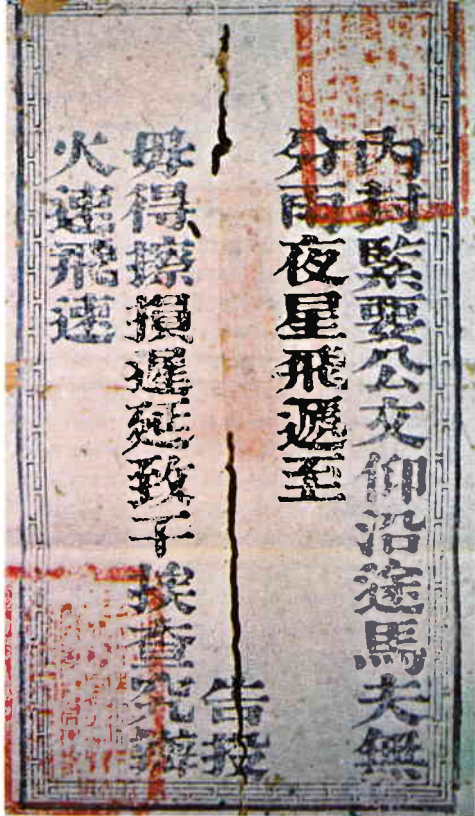 內封緊要公文仰沿途馬夫無
分雨夜星飛遞至
告投
毋得擦損遲延致干挨查究辦
火速飛速